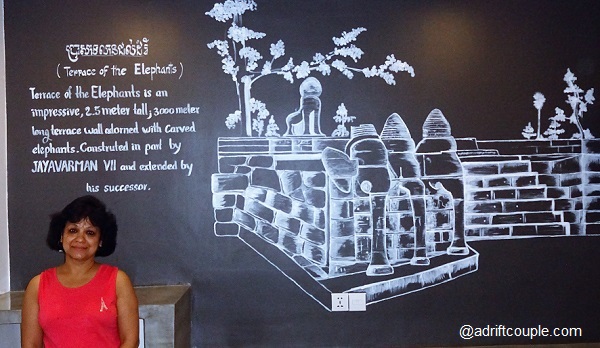 ប្រាសាទលានជល់ដំរី
(Terrace of the Elephants)
Terrace of the Elephants is an
impressive, 2.5 meter tall, 3000 meter
long terrace wall adorned with carved
elephants. Construted in part by
JAYAVARMAN VII and extended by
his successor.
@adriftcouple.com